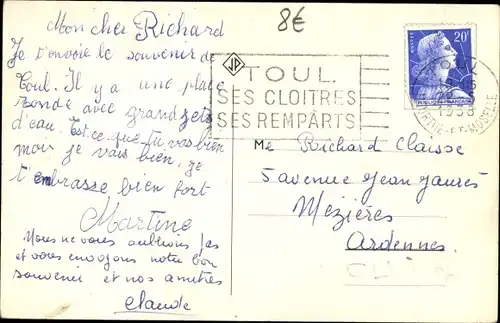 8€
Mon cher Richard
Je t'envoie le souvenir de
Toul. Il y a une place
ronde avec grand jets
d'eau. Est-ce que tu vas bien
moi je vais bien. Je
t'embrasse bien fort
Martine
Nous ne vous oublions pas
et vous envoyons notre bon
souvenir et nos amitiés
Claude
JP
TOUL
SES CLOITRES
SES REMPARTS
20F
TOUL
1958
MRTHE-ET-MOSELLE
Me Richard Claisse
5 avenue Jean Jaurès
Mézières
Ardennes